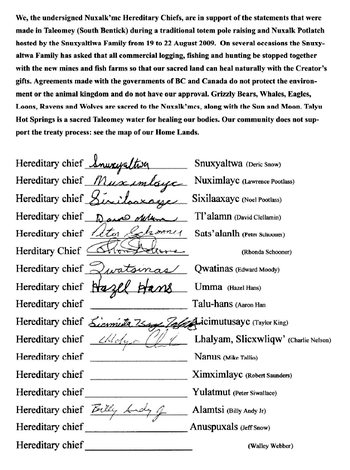 We, the undersigned Nuxalk'mc Hereditary Chiefs, are in support of the statements that were
made in Taleomey (South Bentick) during a traditional totem pole raising and Nuxalk Potlatch
hosted by the Snuxyaltwa Family from 19 to 22 August 2009. On several occasions the Snuxy-
altwa Family has asked that all commercial logging, fishing and hunting be stopped together
with the new mines and fish farms so that our sacred land can heal naturally with the Creator's
gifts. Agreements made with the governments of BC and Canada do not protect the environ-
ment or the animal kingdom and do not have our approval. Grizzly Bears, Whales, Eagles,
Loons, Ravens and Wolves are sacred to the Nuxalk'mcs, along with the Sun and Moon. Talyu
Hot Springs is a sacred Taleomey water for healing our bodies. Our community does not sup-
port the treaty process: see the map of our Home Lands.
Hereditary chief Snuxyaltwa Snuxyaltwa (Deric Snow)
Hereditary chief Nuximlayc Nuximlayc (Lawrence Pootlass)
Hereditary chief Sixilaaxayc Sixilaaxayc (Noel Pootlass)
Hereditary chief David Tl'alamn (David Clellamin)
Hereditary chief Peter Schooner Sats'alanlh (Peter Schooner)
Herditary Chief (Rhonda Schooner)
Hereditary chief Qwatsinas Qwatinas (Edward Moody)
Hereditary chief Hazel Hans Umma (Hazel Hans)
Hereditary chief Talu-hans (Aaron Han
Hereditary chief Licimutusayc (Taylor King)
Hereditary chief Lhalyam, Slicxwliqw' (Charlie Nelson)
Hereditary chief Nanus (Mike Tallio)
Hereditary chief Ximximlayc (Robert Saunders)
Hereditary chief Yulatmut (Peter Siwallace)
Hereditary chief Billy Andy Jr Alamtsi (Billy Andy Jr)
Hereditary chief Anuspuxals (Jeff Snow)
Hereditary chief (Walley Webber)